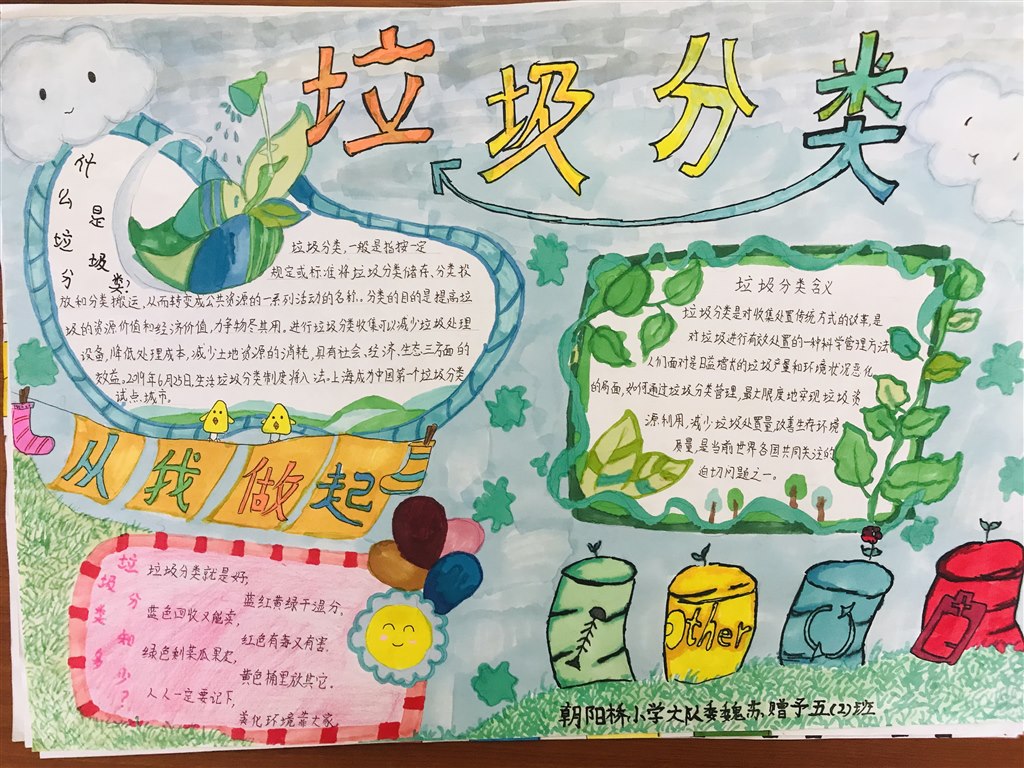 垃圾分类
什么是垃圾分类?
垃圾分类,一般是指按一定
规定或标准将垃圾分类储存、分类投
放和分类搬运,从而转变成公共资源的一系列活动的名称。分类的目的是提高垃
圾的资源价值和经济价值,力争物尽其用。进行垃圾分类收集可以减少垃圾处理
设备,降低处理成本,减少土地资源的消耗,具有社会、经济、生态三方面的
效益。2019年6月25日,生活垃圾分类制度将入法。上海成为中国第一个垃圾分类
试点城市。
从我做起
垃圾分类含义
垃圾分类是对收集处置传统方式的改革,是
对垃圾进行有效处置的一种科学管理方法
人们面对是日益增长的垃圾产量和环境状况恶化
的局面,如何通过垃圾分类管理,最大限度地实现垃圾资
源利用,减少垃圾处置量,改善生存环境
质量,是当前世界各国共同关注的
迫切问题之一。
垃圾分类知多少?
垃圾分类就是好,
蓝红黄绿干湿分,
蓝色回收又能卖,
红色有毒又有害.
绿色剩菜瓜果皮,
黄色桶里放其它.
人人一定要记下,
美化环境靠大家
Other
朝阳桥小学大队委魏苏.赠予五(2)班